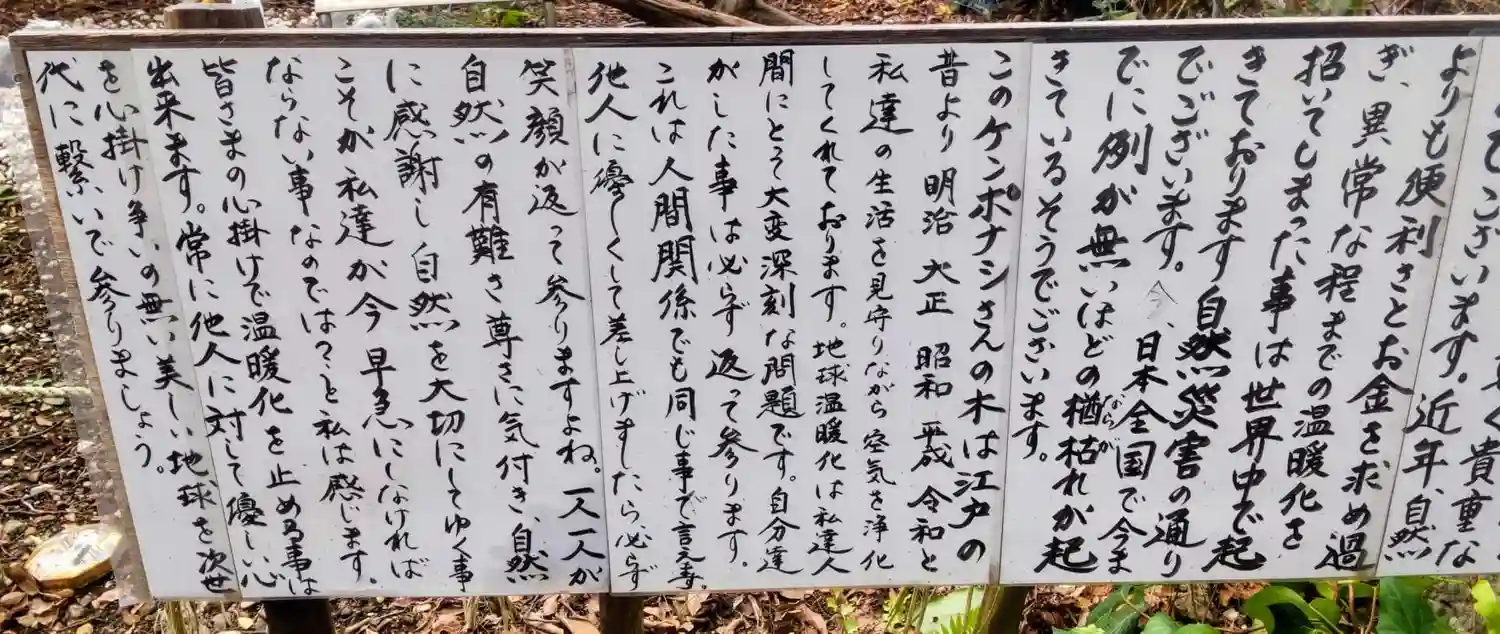 貴重な
よりも便利さとお金を求め過
ぎ、異常な程までの温暖化を
招いてしまった事は世界中で起
きております自然災害の通り
でございます。今、日本全国で今ま
でに例が無いほどの楢枯れが起
ならが
きているそうでございます。
このケンポナシさんの木は江戸の
昔より 明治 大正 昭和 平成 令和と
私達の生活を見守りながら空気を浄化
してくれております。地球温暖化は私達人
間にとって大変深刻な問題です。自分達
がした事は必らず返って参ります。
これは人間関係でも同じ事で言えます。
他人に優しくして差し上げましたら必らず
笑顔が返って参りますよね。一人一人が
自然の有難さ尊さに気付き、自然
に感謝し自然を大切にしてゆく事
こそが私達が今早急にしなければ
ならない事なのでは?と私は感じます。
皆さまの心掛けで温暖化を止める事は
出来ます。常に他人に対して優しい心
を心掛け争いの無い美しい地球を次世
代に繋いで参りましょう。